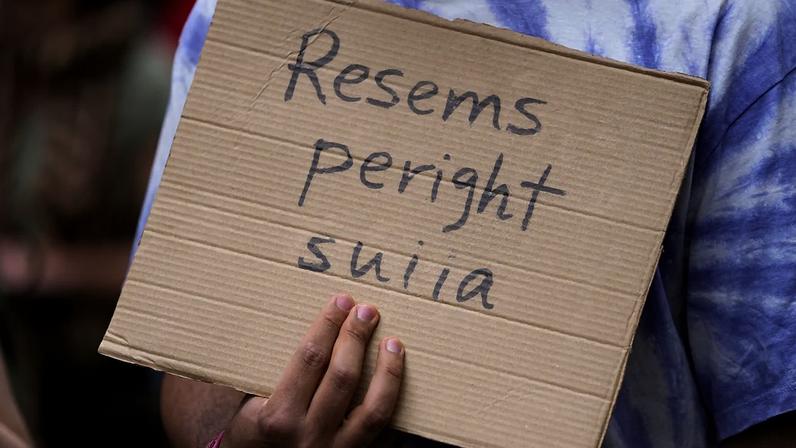 Resems
peright
suiia